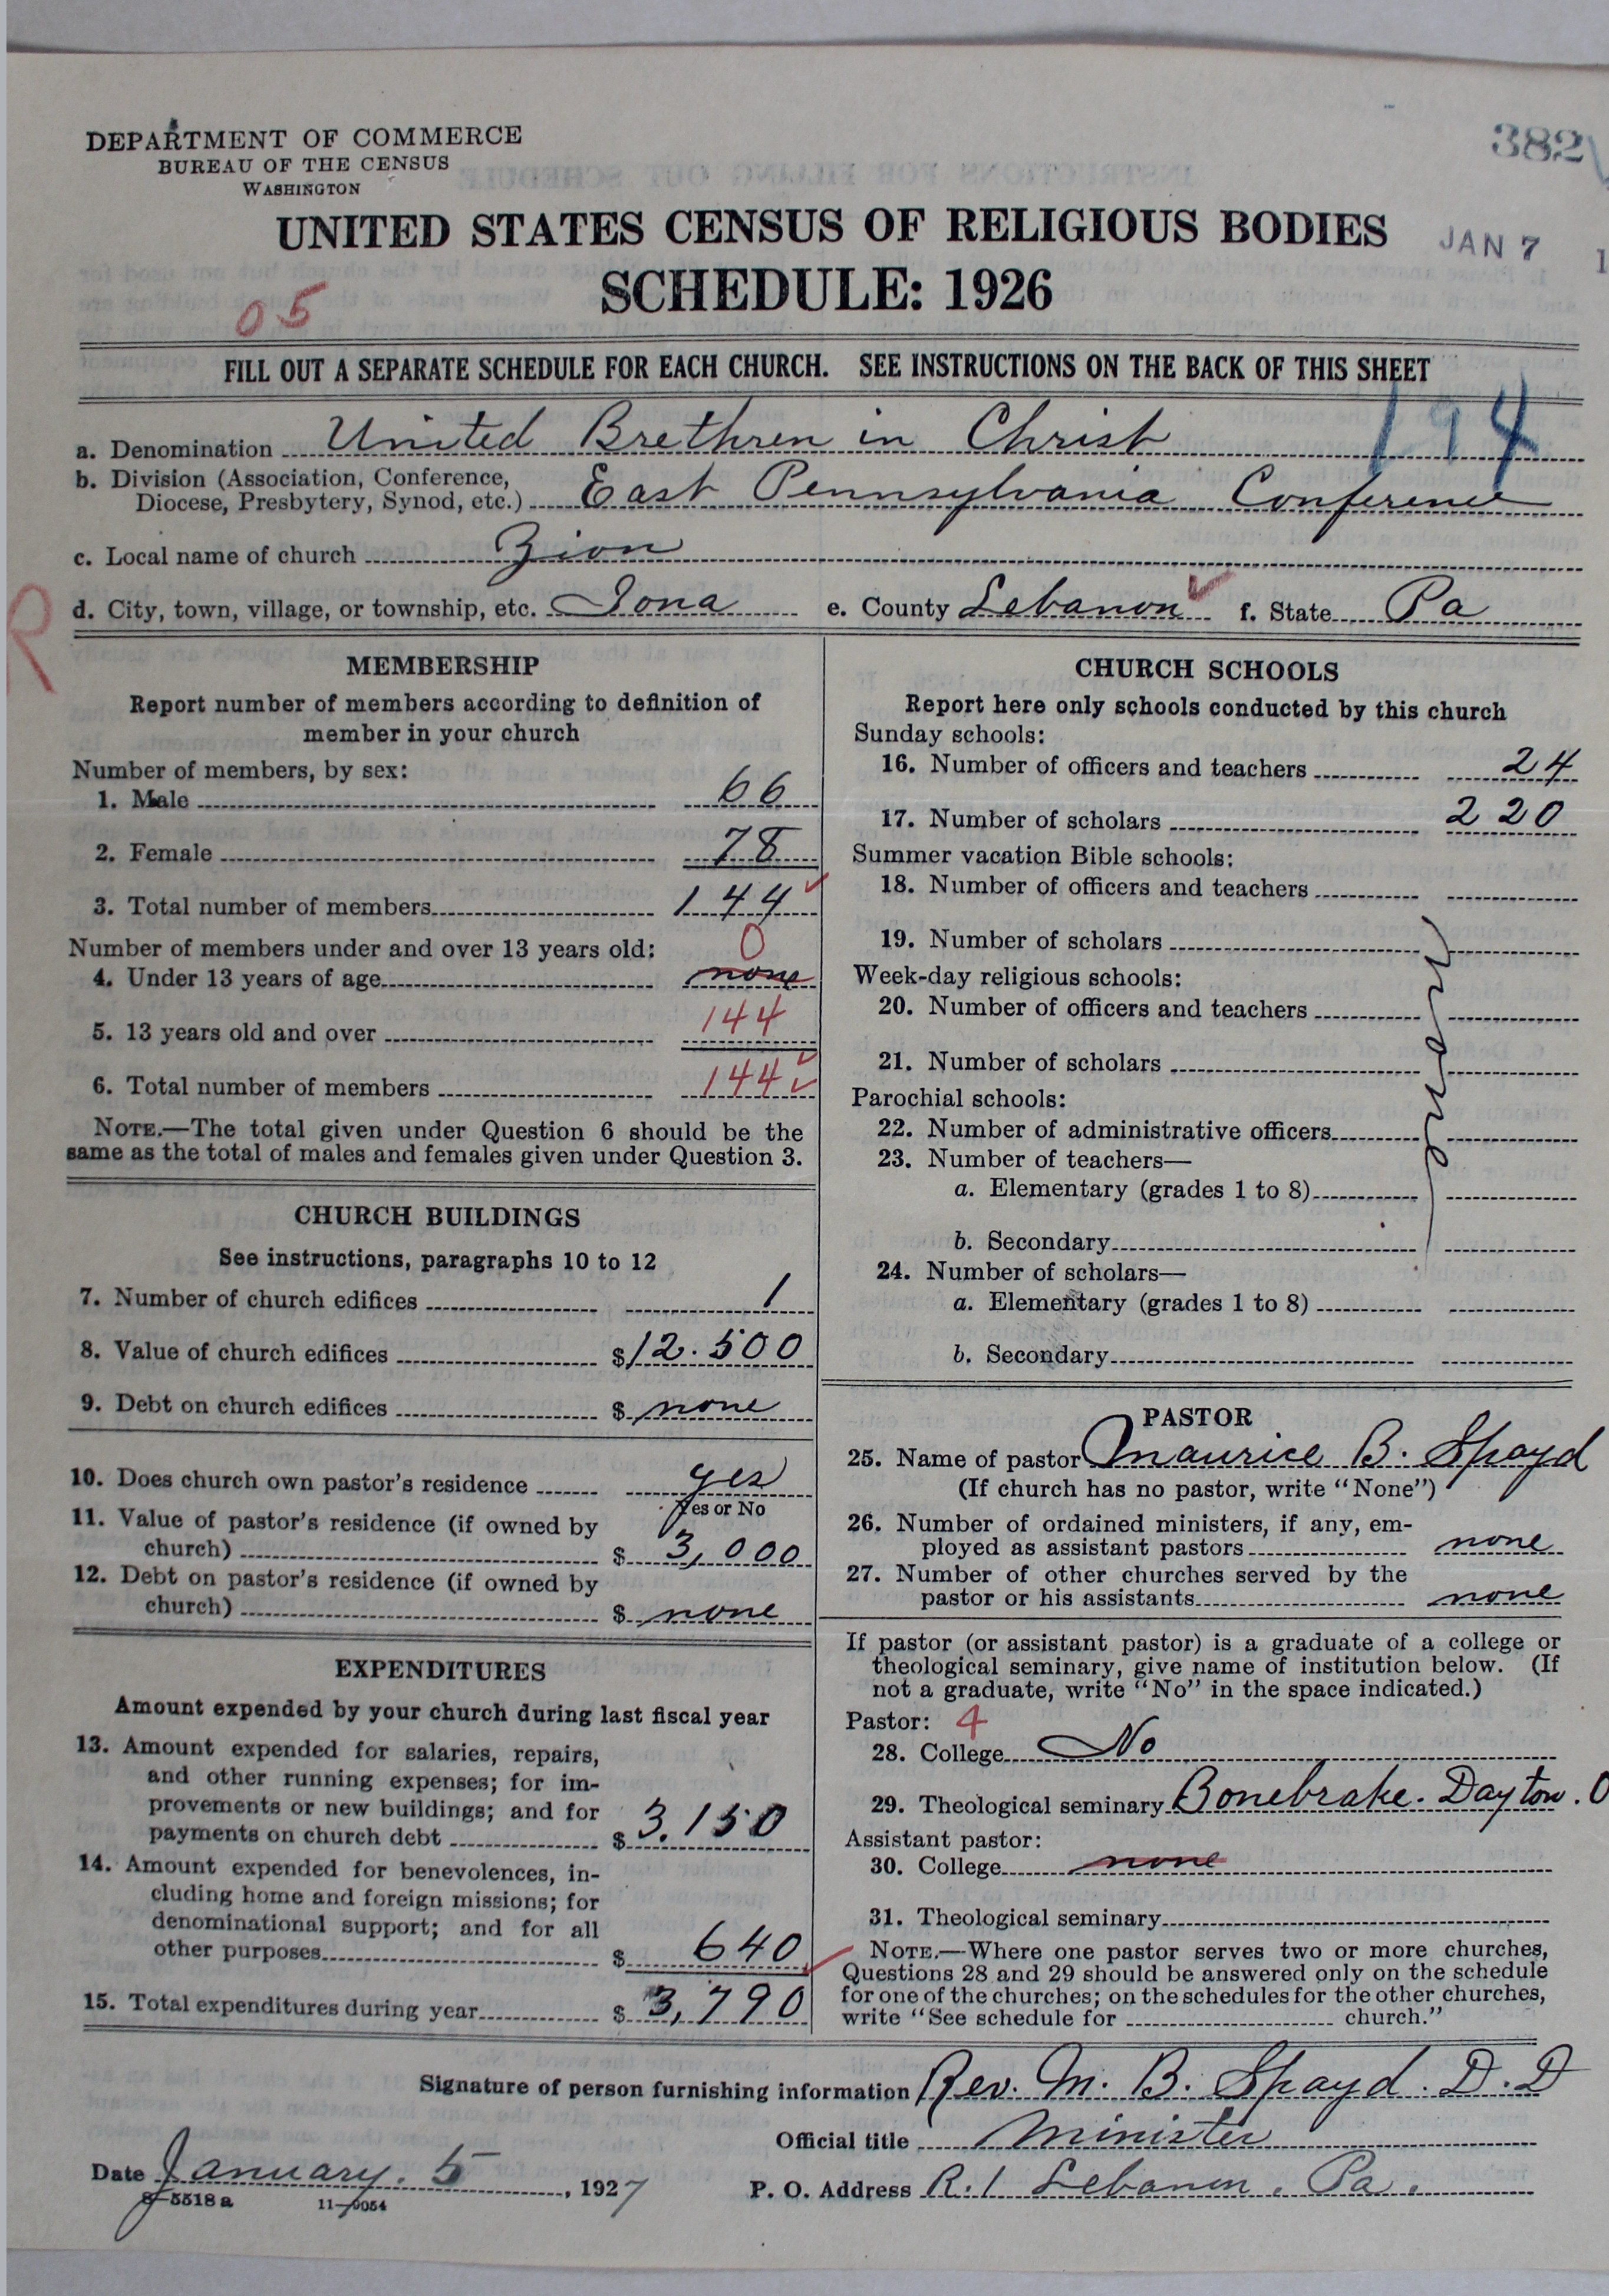 DEPARTMENT OF COMMERCE
BUREAU OF THE CENSUS
WASHINGTON
382
UNITED STATES CENSUS OF RELIGIOUS BODIES
JAN 7
SCHEDULE: 1926
05
FILL OUT A SEPARATE SCHEDULE FOR EACH CHURCH. SEE INSTRUCTIONS ON THE BACK OF THIS SHEET
a. Denomination United Brethren in Christ
b. Division (Association, Conference,
Diocese, Presbytery, Synod, etc.) East Pennsylvania Conference
c. Local name of church Zion
R
d. City, town, village, or township, etc. Iona e. County Lebanon f. State Pa
MEMBERSHIP
Report number of members according to definition of
member in your church
Number of members, by sex:
1. Male 66
2. Female 78
3. Total number of members 144
Number of members under and over 13 years old: 0
4. Under 13 years of age none
5. 13 years old and over 144
6. Total number of members 144
NOTE.—The total given under Question 6 should be the
same as the total of males and females given under Question 3.
CHURCH BUILDINGS
See instructions, paragraphs 10 to 12
7. Number of church edifices 1
8. Value of church edifices $12.500
9. Debt on church edifices $ none
10. Does church own pastor's residence yes
Yes or No
11. Value of pastor's residence (if owned by
church) $ 3,000
12. Debt on pastor's residence (if owned by
church) $ none
EXPENDITURES
Amount expended by your church during last fiscal year
13. Amount expended for salaries, repairs,
and other running expenses; for im-
provements or new buildings; and for
payments on church debt $ 3.150
14. Amount expended for benevolences, in-
cluding home and foreign missions; for
denominational support; and for all
other purposes $ 640
15. Total expenditures during year $ 3,790
CHURCH SCHOOLS
Report here only schools conducted by this church
Sunday schools:
16. Number of officers and teachers 24
17. Number of scholars 220
Summer vacation Bible schools:
18. Number of officers and teachers
19. Number of scholars
Week-day religious schools:
20. Number of officers and teachers
21. Number of scholars
none
Parochial schools:
22. Number of administrative officers
23. Number of teachers—
a. Elementary (grades 1 to 8)
b. Secondary
24. Number of scholars—
a. Elementary (grades 1 to 8)
b. Secondary
PASTOR
25. Name of pastor Maurice B. Spayd
(If church has no pastor, write "None")
26. Number of ordained ministers, if any, em-
ployed as assistant pastors none
27. Number of other churches served by the
pastor or his assistants none
If pastor (or assistant pastor) is a graduate of a college or
theological seminary, give name of institution below. (If
not a graduate, write "No" in the space indicated.)
Pastor: 4
28. College No
29. Theological seminary Bonebrake. Dayton. O
Assistant pastor:
30. College none
31. Theological seminary
NOTE.—Where one pastor serves two or more churches,
Questions 28 and 29 should be answered only on the schedule
for one of the churches; on the schedules for the other churches,
write "See schedule for church."
Signature of person furnishing information Rev. M. B. Spayd. D.D
Official title Minister
Date January. 5, 1927
P. O. Address R. 1 Lebanon. Pa.
8—5518 a 11—9054